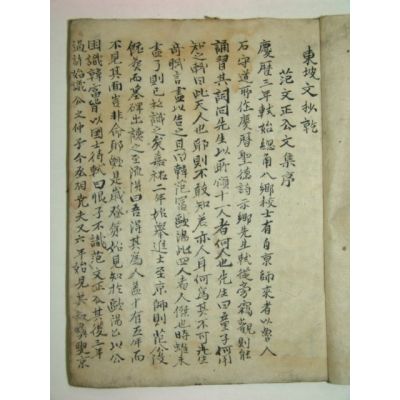 東坡文抄乾
范文正公文集序
慶曆三年軾始總角入鄉校士有自京師來者以魯人
石守道所作慶曆聖德詩示鄉先生軾從旁竊觀則能
誦習其詞問先生以所頌十一人者何人也先生曰童子何用
知之軾曰此天人也耶則不敢知若亦人耳何為其不可先生
奇軾言盡以告之且曰韓范富歐陽此四人者人傑也時雖未
盡了則已私識之矣嘉祐二年始舉進士至京師則范公歿
既葬而墓碑出讀之至流涕曰吾得其為人蓋十有五年而
不見其面豈非命耶歟是歲登第始見知於歐陽公以公
因識韓富皆以國士待軾曰恨子不識范文正公其後三年
過許始識公之仲子今丞相堯夫又六年始見其叔彝叟京